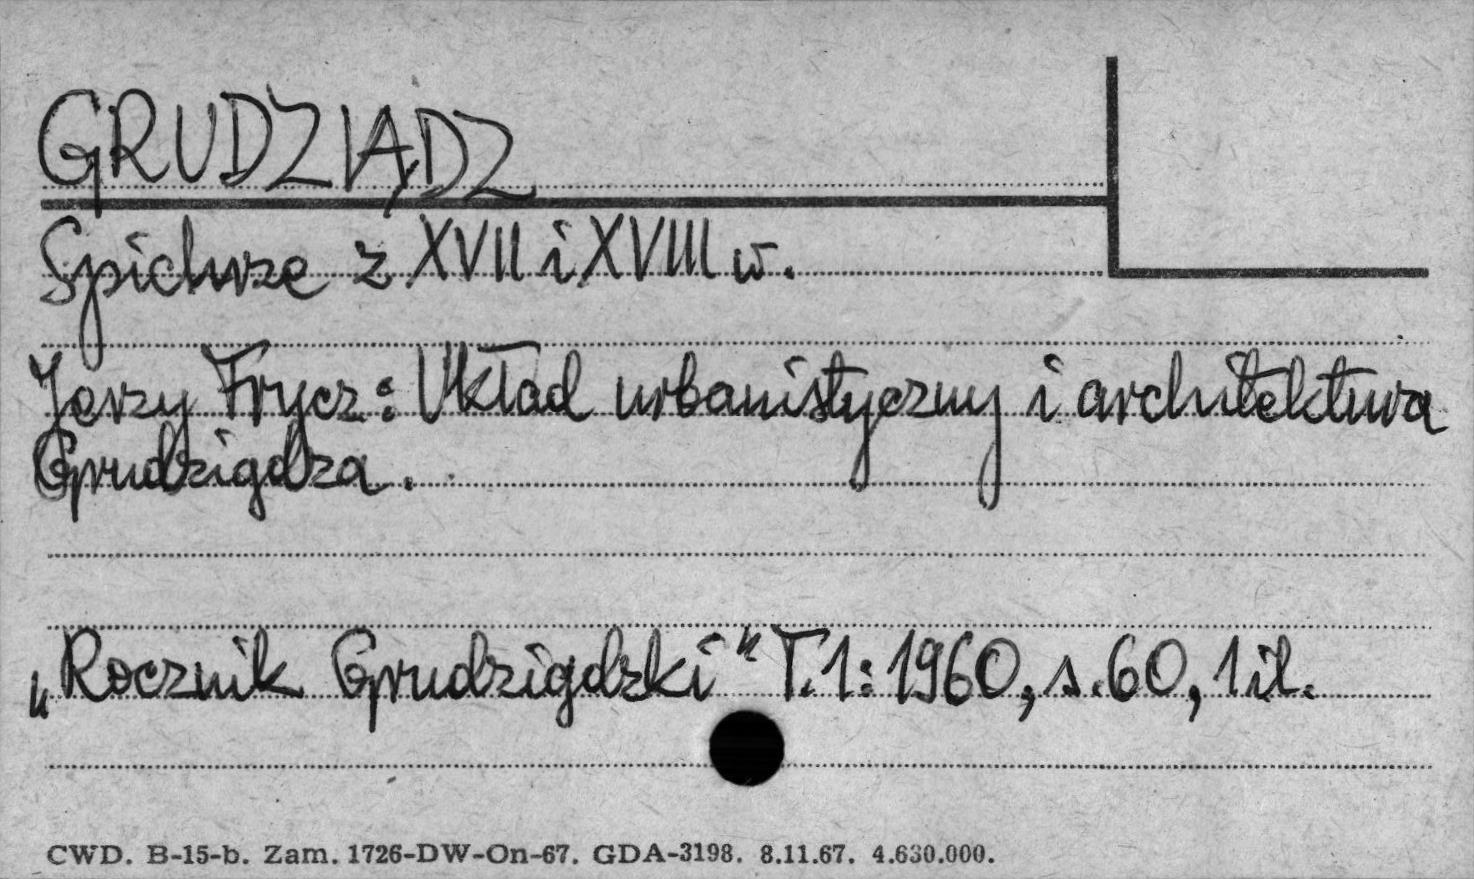 GRUDZIĄDZ
Spichrze z XVII i XVIII w.
Jerzy Frycz: Układ urbanistyczny i architektura
Grudziądza.
„Rocznik Grudziądzki" T.1: 1960, s. 60, 1 il.
CWD. B-15-b. Zam. 1726-DW-On-67. GDA-3198. 8.11.67. 4.630.000.